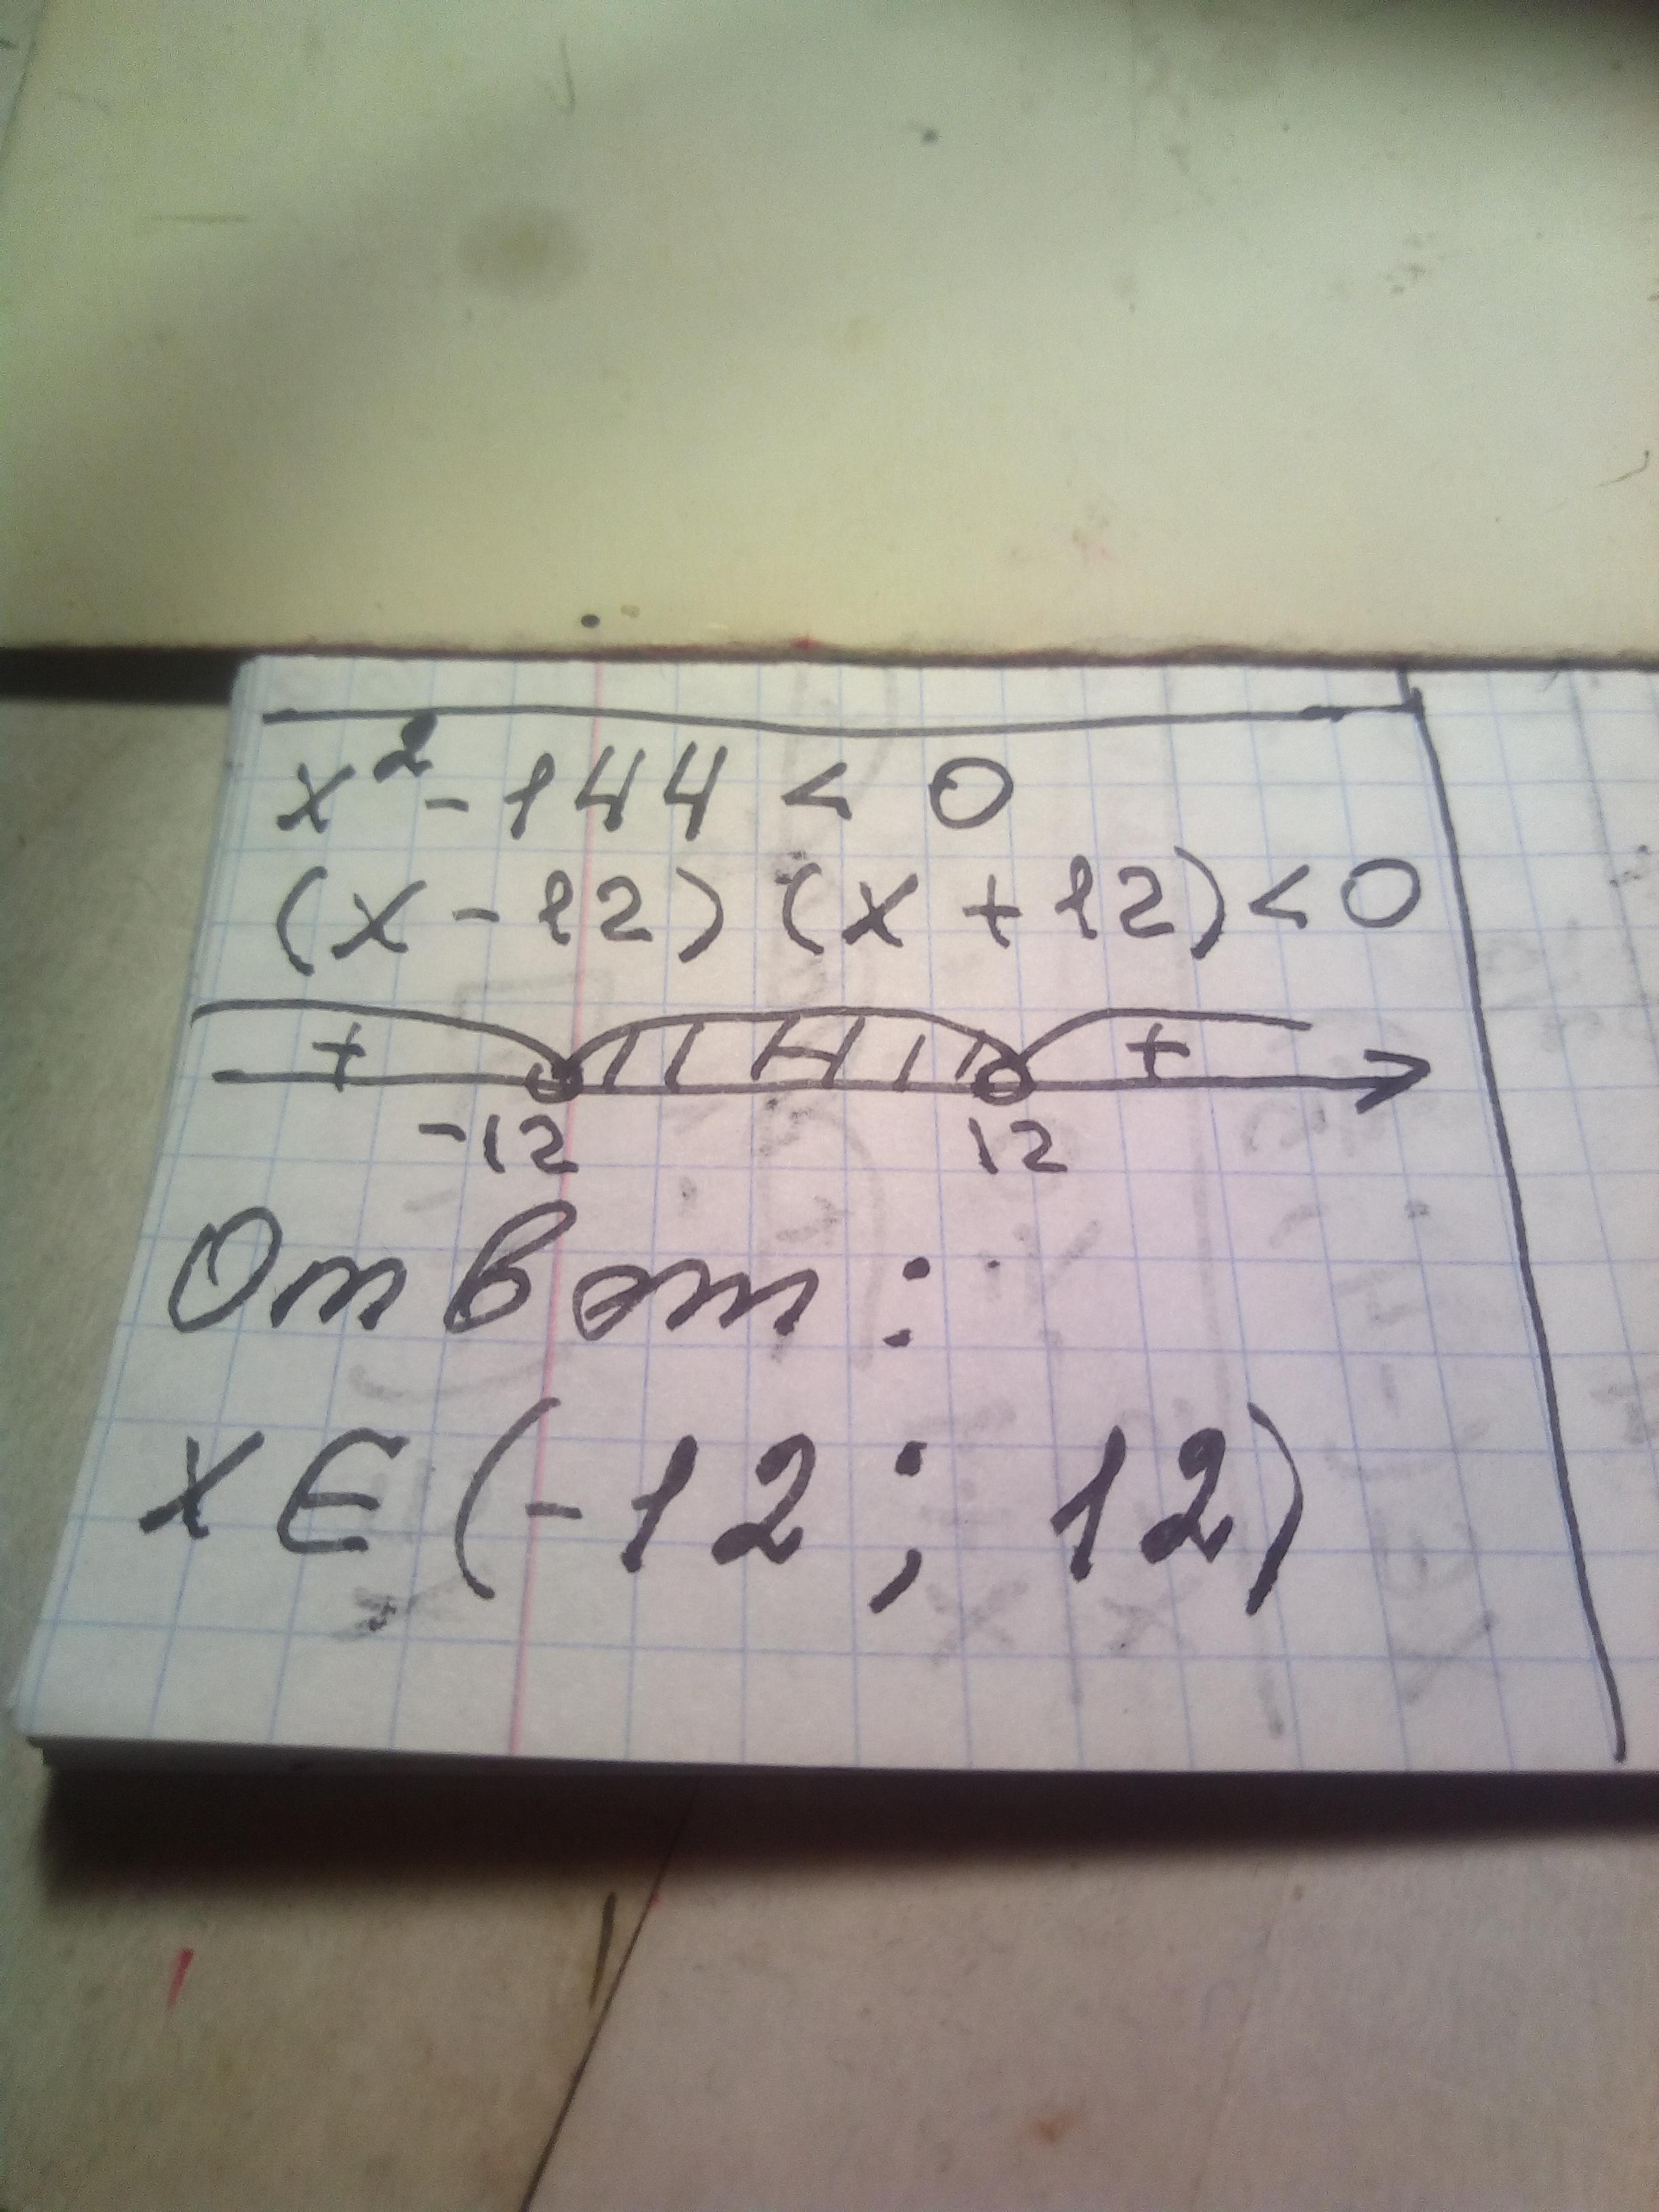 x² - 144 < 0
(x - 12) (x + 12) < 0
+ - +
-12 12
Ответ:
x ∈ (-12 ; 12)